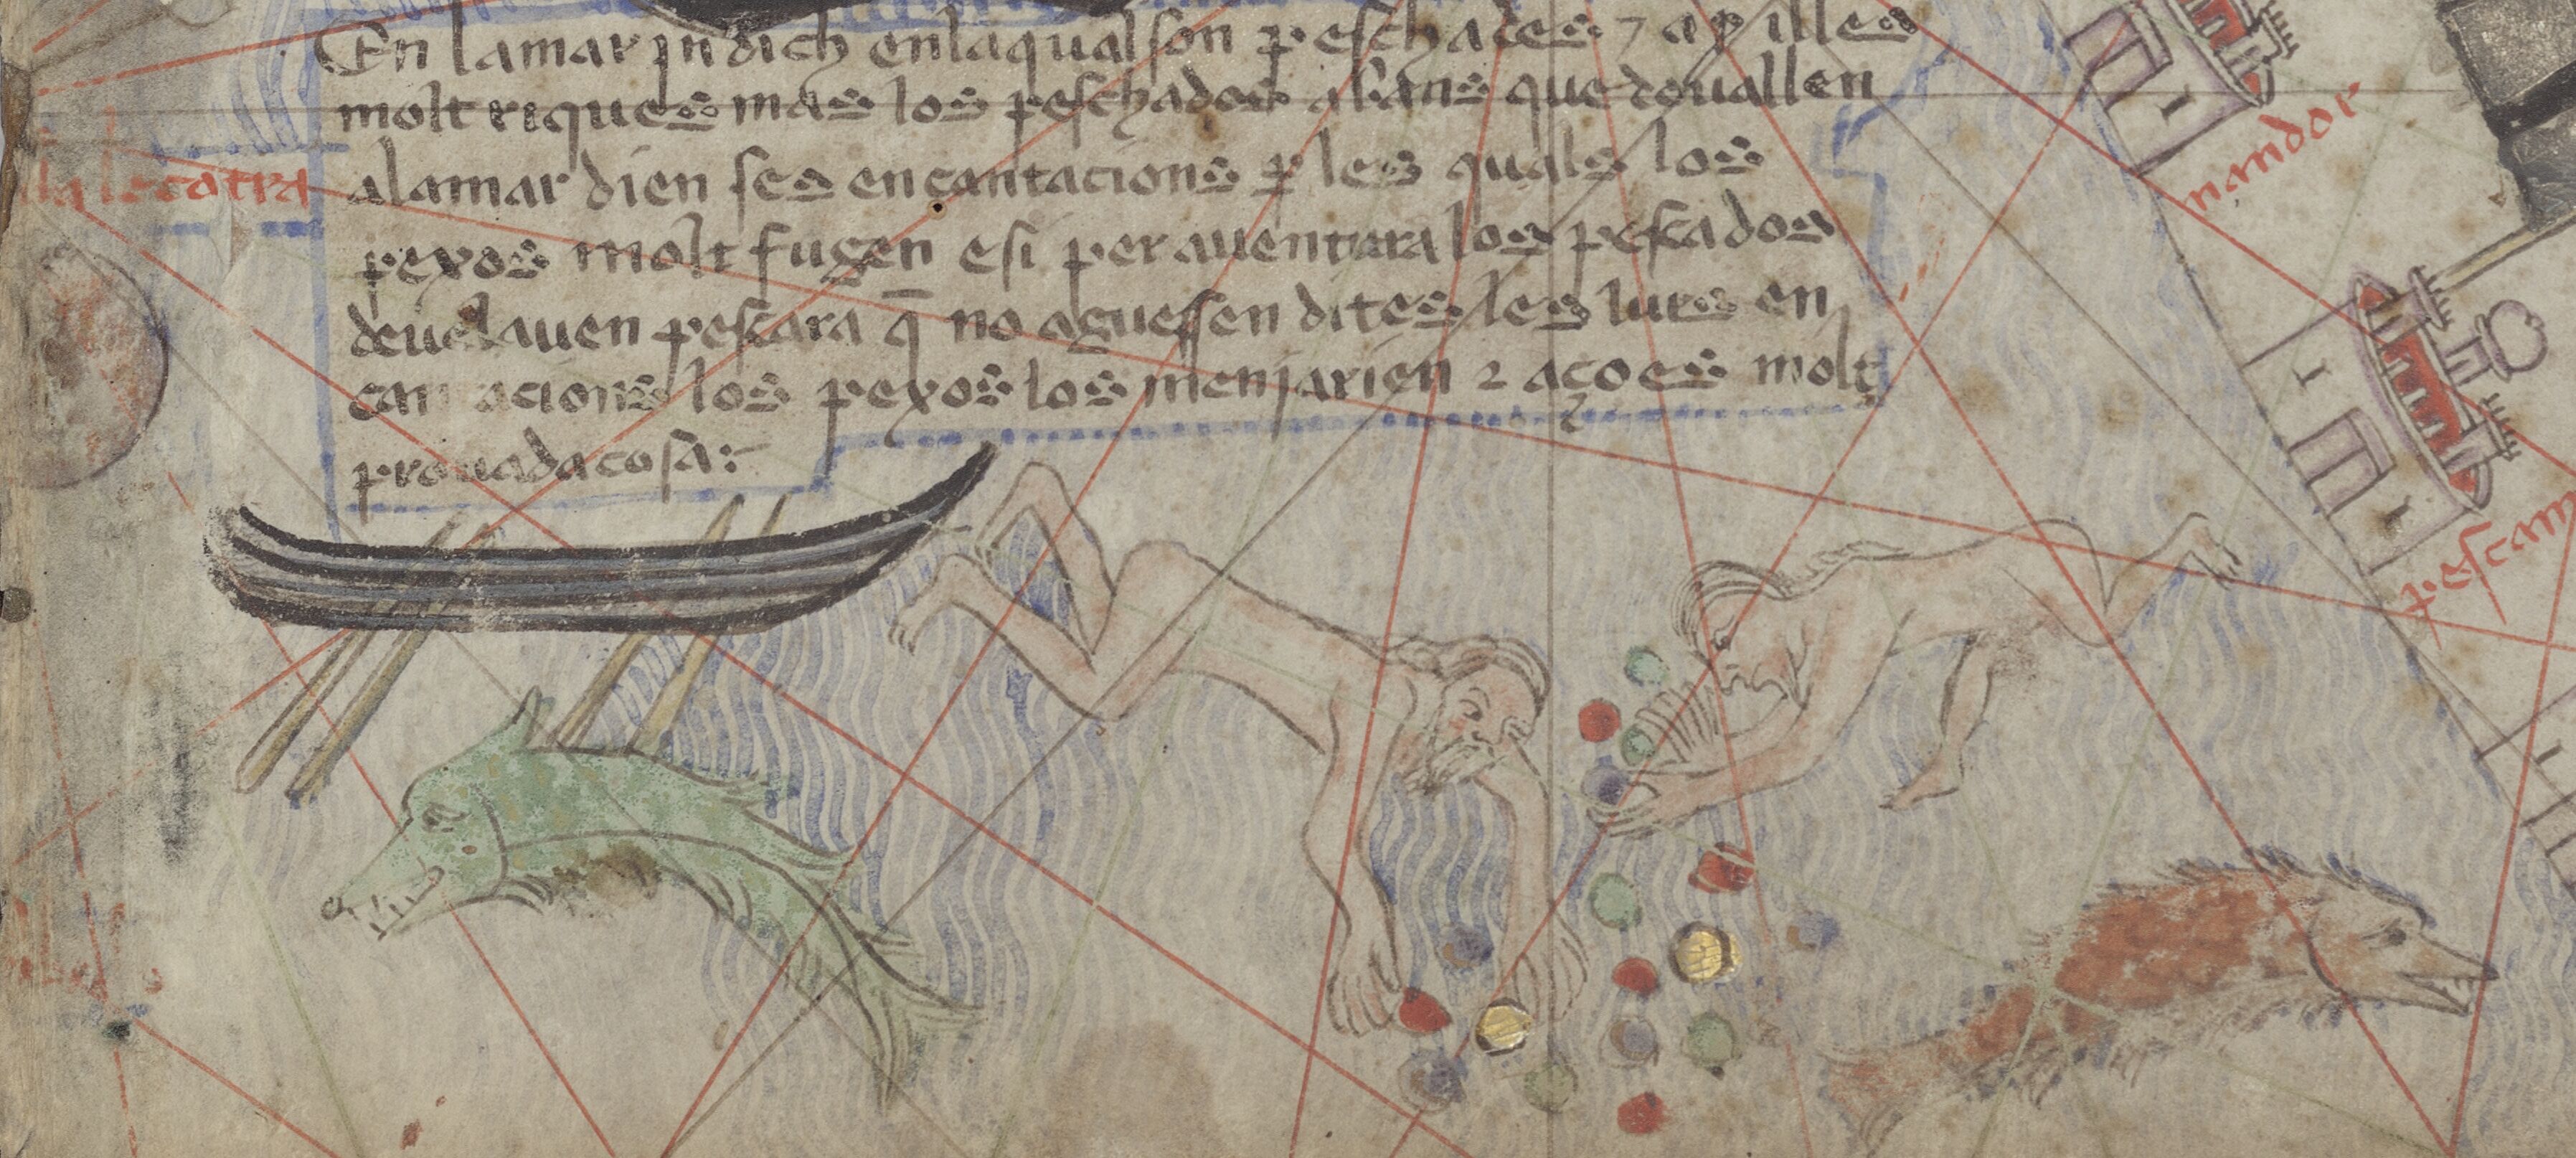 En lamar indich enlaqual son peschades 7 ay illes
molt riques mas los peschados abans que dauallen
alamar dien ses encantacions per les quals los
pexos molt fugen e si per auentura los pescados
deuallauen pescara q̄ no aguessen dites les lurs en
cantacions los pexos los menjarien 2 aço es molt
prouada cosa:
nandor
pescam